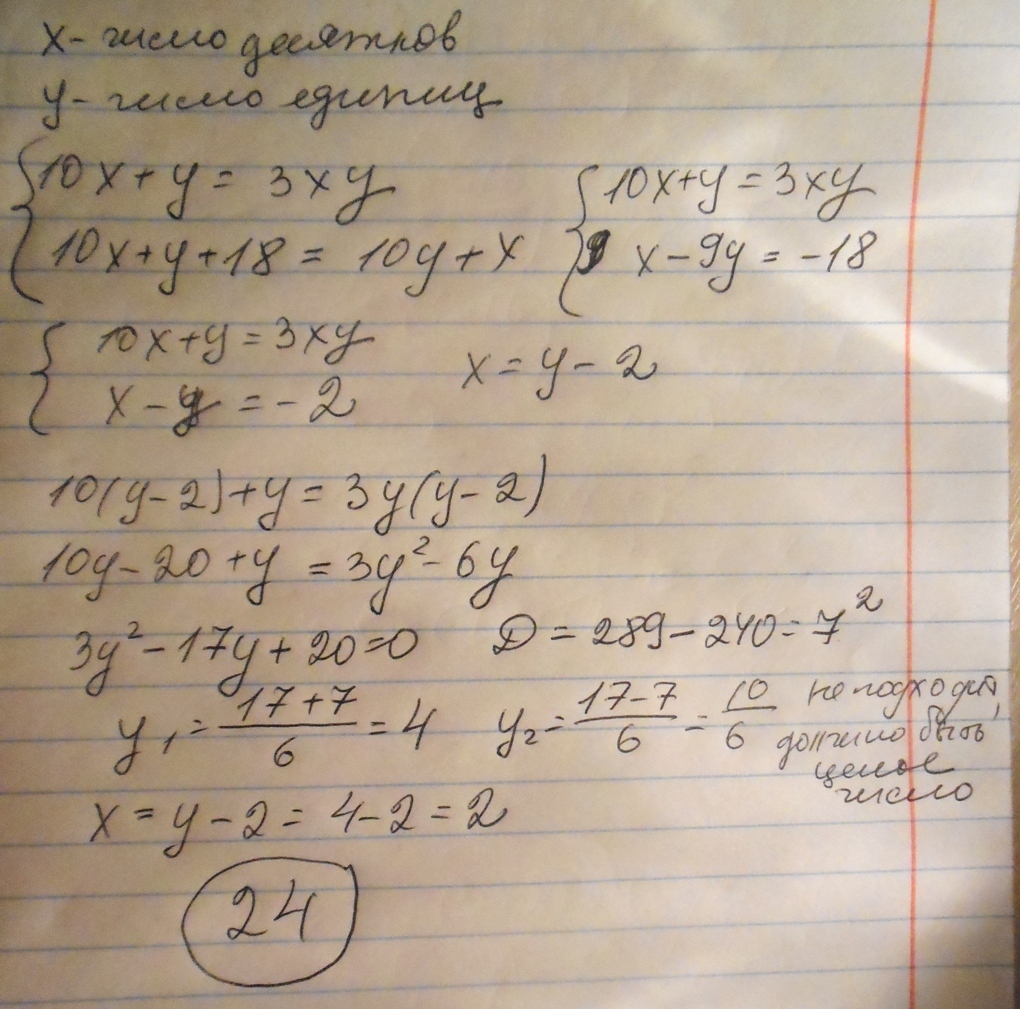 x - число десятков
y - число единиц
{ 10x + y = 3xy
10x + y + 18 = 10y + x
{ 10x + y = 3xy
9x - 9y = -18
{ 10x + y = 3xy
x - y = -2
x = y - 2
10(y - 2) + y = 3y(y - 2)
10y - 20 + y = 3y² - 6y
3y² - 17y + 20 = 0 D = 289 - 240 = 7²
y₁ = (17 + 7)/6 = 4 y₂ = (17 - 7)/6 = 10/6 не подходит,
должно быть
целое
число
x = y - 2 = 4 - 2 = 2
24